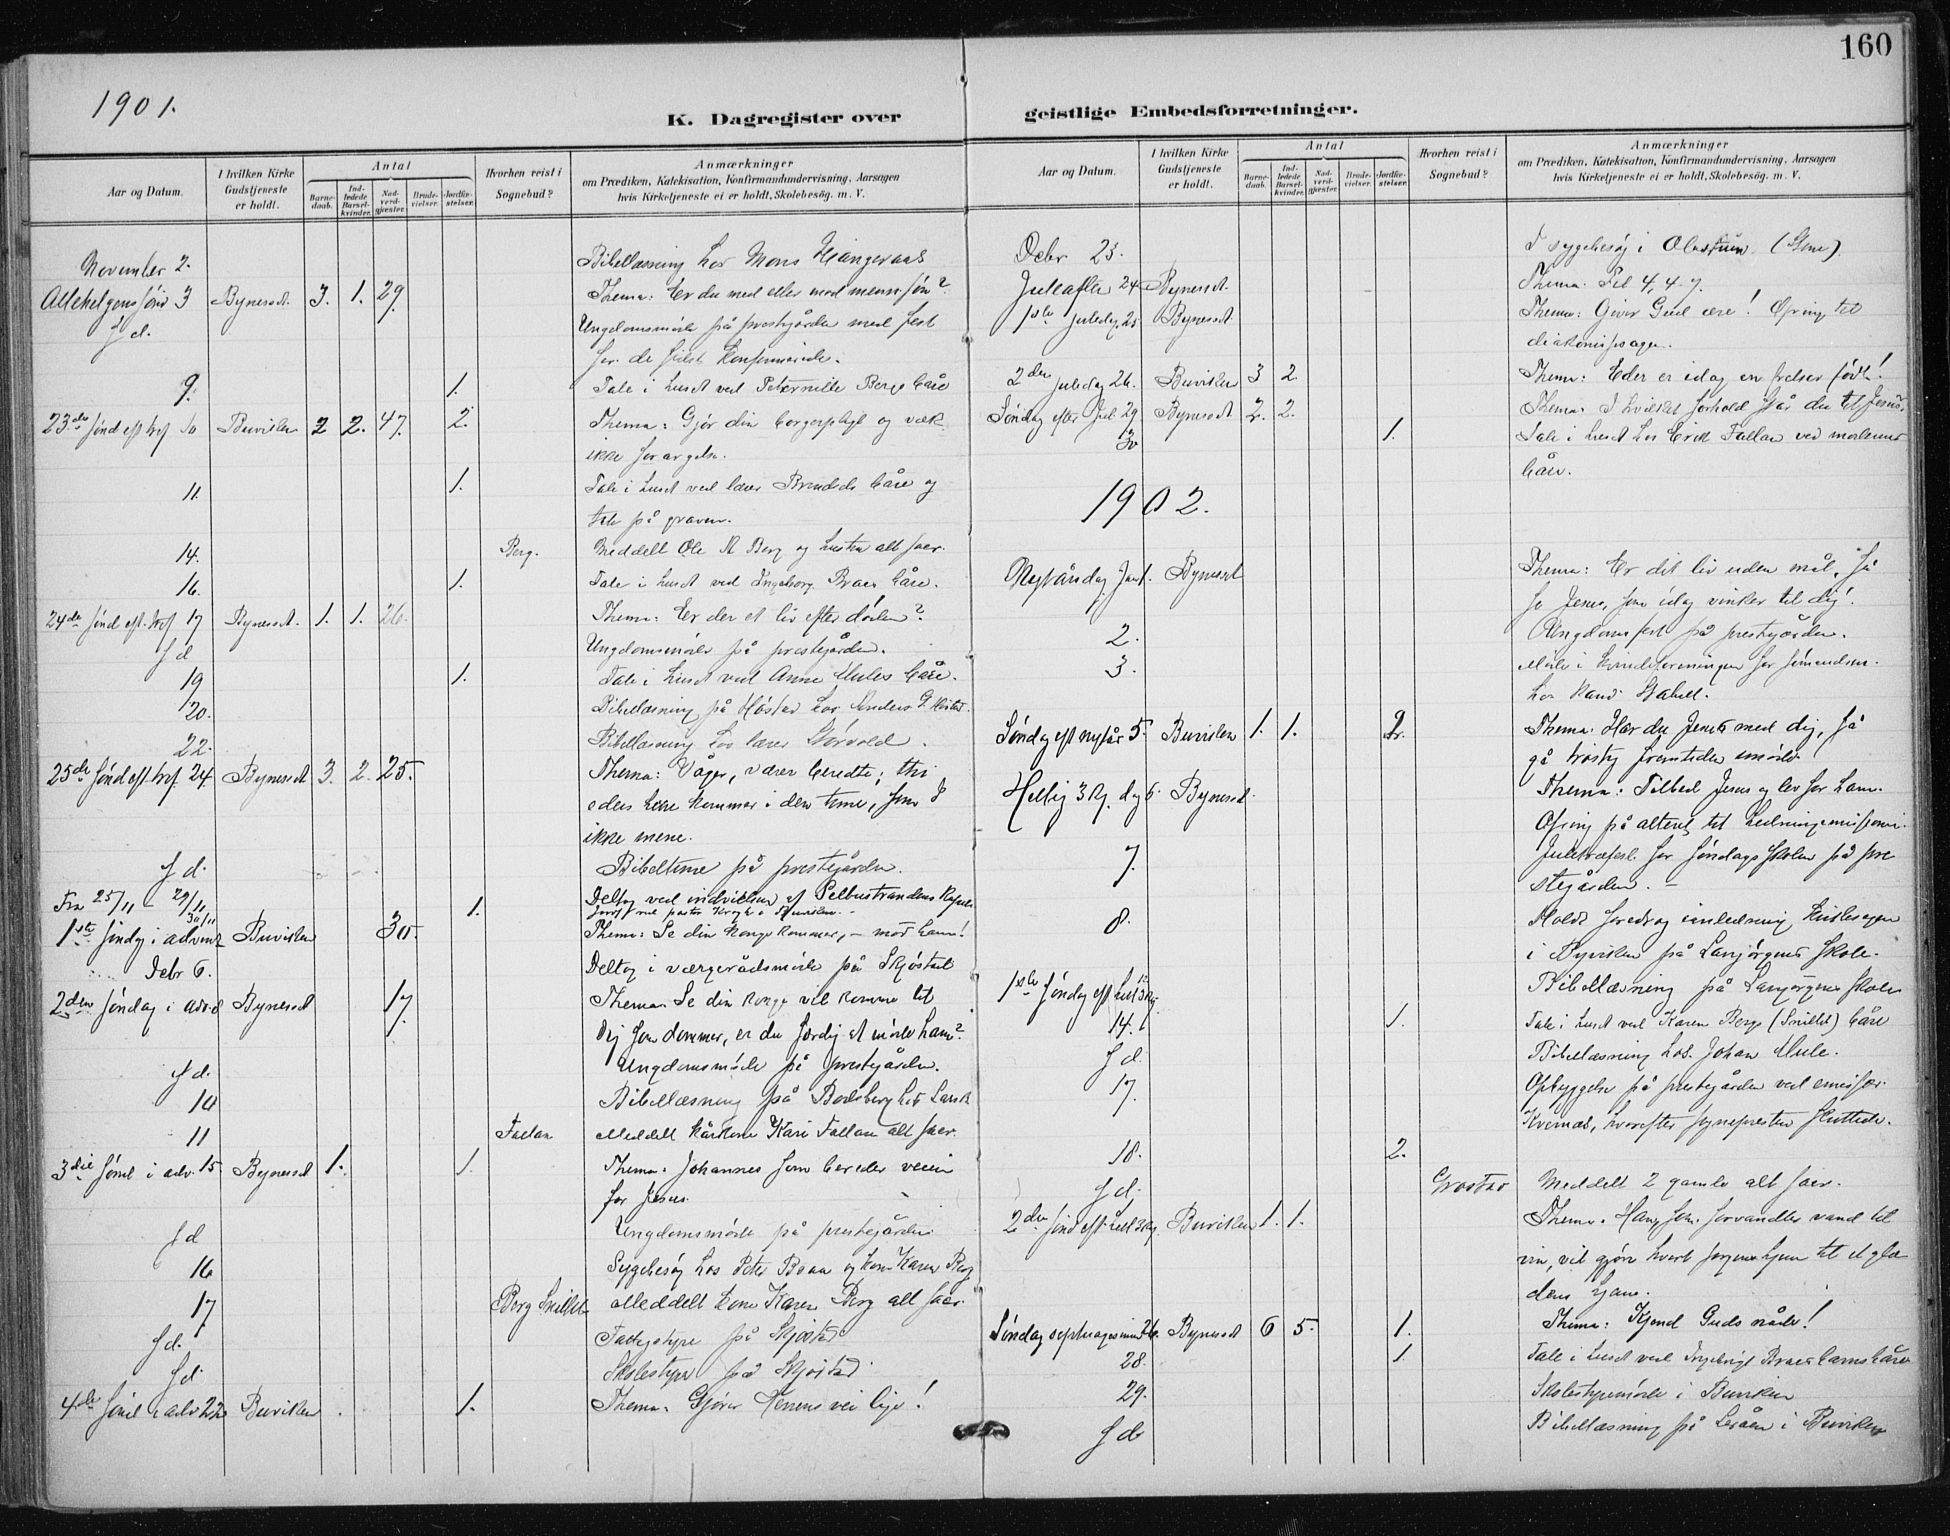 160
1901.
K. Dagregister over geistlige Embedsforretninger.
Aar og Datum.
I hvilken Kirke Gudstjeneste er holdt.
Antal
Barnedaab.
Indledede Barselkvinder.
Nadverdgjester.
Brudevielser.
Jordfæstelser.
Hvorhen reist i Sognebud?
Anmærkninger
om Prædiken, Katekisation, Konfirmandundervisning, Aarsagen
hvis Kirketjeneste ei er holdt, Skolebesög. m. V.
November 2. Bibellæsning hos Mons
Allehelgens sönd 3 Bynesset. 3. 1. 29. Thema: Er du med eller mod menn. sön?
S. d. Ungdomsmöde på prestegården med fest
for de sidst konfirmerede.
9. 1. Tale i huset ved Peternille Bergs båre
23de sönd eft tref 10 Buviken 2 2. 47. 2. Thema: Gjör din borgerpligt og væk
ikke forargelse.
11. 1. Tale i huset ved lærer båre og
tale på graven.
14. Berg. Meddelt Ole Berg og hustru alt. sacr.
16. 1. Tale i huset ved Ingeborg Braas båre.
24de sönd eft. tref 17 Bynesset. 1. 1. 26. Thema: Er der et liv efter döden?
S d Ungdomsmöde på prestegården.
19 1. Tale i huset ved Anne Mules båre.
20. Bibellæsning på Höstad hos Anders G. Höstad.
22. Bibellæsning hos lærer
25de sönd eft. tref. 24 Bynesset 3. 2. 25. Thema: Våger, værer beredte; thi
eders herre kommer i den time, som I
ikke mene.
S. d. Bibeltime på prestegården.
Fra 25/11 – 29/11 1. Deltog ved indvielsen af Selbustrandens kapel.
30/11
1ste söndag i advent Buviken 30. Thema: Se din konge kommer, – mod ham!
Debr 6. Deltog i værgerådsmöde på Skjöstad
2den söndag i adv. 8 Bynesset 17 Thema. Se din konge vil komme til
dig som dommer, er du færdig at möde ham?
S d. Ungdomsmöde på prestegården.
10 Bibellæsning på Bodsberg hos Lars
11 Fallan Meddelt Kari Fallan alt. sacr.
3die sönd i adv. 15 Bynesset 1. 1. Thema: Johannes som bereder veien
for Jesus.
S d Ungdomsmöde på prestegården
16 Sygebesög hos Peter Braa og kone Karen Berg
17 Berg Meddelt kone Karen Berg alt. sacr.
S d. Fattigstyre på Skjöstad
S d. Skolestyre på Skjöstad.
4de sönd i adv 22 Buviken 1. Thema: Gjörer Herrens vei lige!
Aar og Datum.
I hvilken Kirke Gudstjeneste er holdt.
Antal
Barnedaab.
Indledede Barselkvinder.
Nadverdgjester.
Brudevielser.
Jordfæstelser.
Hvorhen reist i Sognebud?
Anmærkninger
om Prædiken, Katekisation, Konfirmandundervisning, Aarsagen
hvis Kirketjeneste ei er holdt, Skolebesög. m. V.
Debr 23. I sygebesög i
Juleaften 24 Bynesset Thema. 4, 4-7.
1ste juledag 25 Bynesset Thema: Giver Gud ære! Ofring til
diakonissesagen.
2den juledag 26. Buviken 3 2. Thema: Eder er idag en frelser född!
Söndag efter Jul 29. Bynesset 2. 2. Thema: I hvilket forhold står du til Jesus.
30 1. Tale i huset hos Erik Fallan ved moderens
båre.
1902.
Nytårsdag. Jan 1. Bynesset Thema: Er dit liv uden mål, så
se Jesus, som idag vinker til dig!
2. Ungdomsfest på prestegården.
3. Möde i kvindeforeningen for sömandsm.
hos Stabell.
Söndag eft nytår 5. Buviken 1. 1. 2. Thema: Har du Jesus med dig, så
gå tröstig fremtiden imöde.
Hellig 3 kg. dag 6. Bynesset. Thema: Tilbed Jesus og lev for ham.
Ofring på alteret til hedningemissionen.
7. Juletræfest for Söndagsskolen på pre
stegården. –
8. Holdt foredrag
i Byviken på Skole.
Bibellæsning på Skole
1ste Söndag eft hell 3 kg. 12
14. 1. Tale i huset ved Karen Bergs båre
S d. Bibellæsning hos Johan Mule.
17. Opbyggelse på prestegården ved emissær
Kvernås, hvorefter sognepresten sluttede.
18. 2.
S d. Meddelt 2 gamle alt sacr.
2den sönd eft. hell 3 kg. Buviken 1. 1. Thema: Han, som forvandler vand til
vin, vil gjöre hvert sorgens hjem til et glæ
dens hjem.
Söndag septuagesima 26. Bynesset 6 5. 1. Thema: Kjend Guds nåde!
28. 1 Tale i huset ved Ingebrigt Braas barns båre
29. Skolestyremöde i Buviken
S d. Bibellæsning på Leråen i Buviken